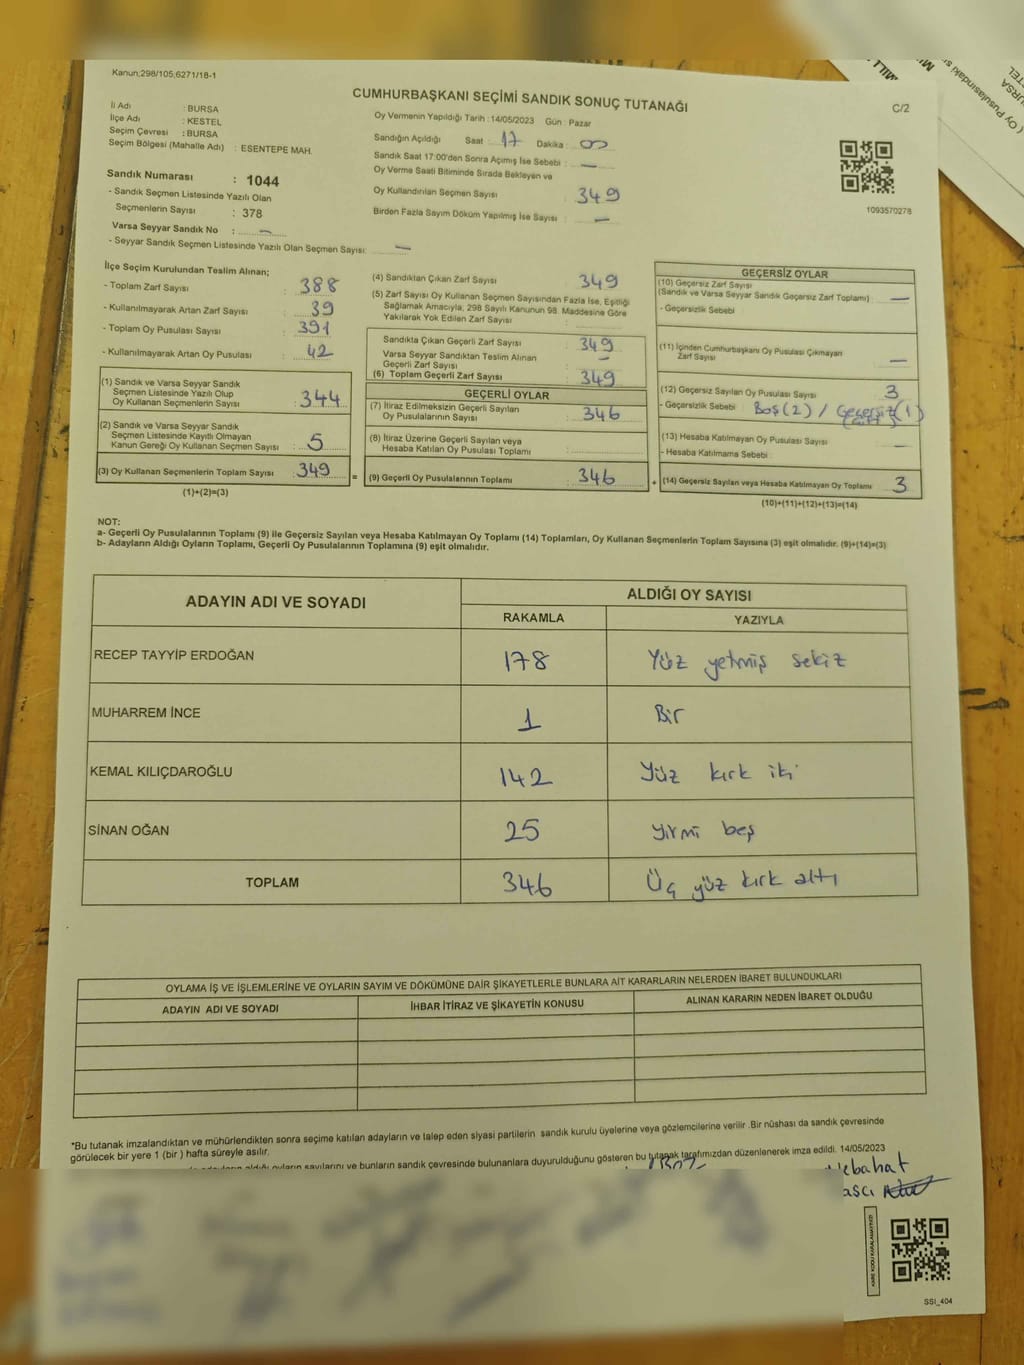 Kanun;298/105;6271/18-1
CUMHURBAŞKANI SEÇİMİ SANDIK SONUÇ TUTANAĞI
C/2
İl Adı : BURSA
İlçe Adı : KESTEL
Seçim Çevresi : BURSA
Seçim Bölgesi (Mahalle Adı) : ESENTEPE MAH.
Sandık Numarası : 1044
- Sandık Seçmen Listesinde Yazılı Olan
Seçmenlerin Sayısı : 378
Varsa Seyyar Sandık No : —
- Seyyar Sandık Seçmen Listesinde Yazılı Olan Seçmen Sayısı: —
Oy Vermenin Yapıldığı Tarih : 14/05/2023 Gün : Pazar
Sandığın Açıldığı Saat : 17 Dakika : 00
Sandık Saat 17:00'den Sonra Açımış İse Sebebi : —
Oy Verme Saati Bitiminde Sırada Bekleyen ve
Oy Kullandırılan Seçmen Sayısı : 349
Birden Fazla Sayım Döküm Yapılmış İse Sayısı : —
1093570278
İlçe Seçim Kurulundan Teslim Alınan;
- Toplam Zarf Sayısı : 388
- Kullanılmayarak Artan Zarf Sayısı : 39
- Toplam Oy Pusulası Sayısı : 391
- Kullanılmayarak Artan Oy Pusulası : 42
(1) Sandık ve Varsa Seyyar Sandık
Seçmen Listesinde Yazılı Olup
Oy Kullanan Seçmenlerin Sayısı : 344
(2) Sandık ve Varsa Seyyar Sandık
Seçmen Listesinde Kayıtlı Olmayan
Kanun Gereği Oy Kullanan Seçmen Sayısı : 5
(3) Oy Kullanan Seçmenlerin Toplam Sayısı : 349
(1)+(2)=(3)
(4) Sandıktan Çıkan Zarf Sayısı : 349
(5) Zarf Sayısı Oy Kullanan Seçmen Sayısından Fazla İse, Eşitliği
Sağlamak Amacıyla, 298 Sayılı Kanunun 98. Maddesine Göre
Yakılarak Yok Edilen Zarf Sayısı :
Sandıkta Çıkan Geçerli Zarf Sayısı : 349
Varsa Seyyar Sandıktan Teslim Alınan
Geçerli Zarf Sayısı : —
(6) Toplam Geçerli Zarf Sayısı : 349
GEÇERLİ OYLAR
(7) İtiraz Edilmeksizin Geçerli Sayılan
Oy Pusulalarının Sayısı : 346
(8) İtiraz Üzerine Geçerli Sayılan veya
Hesaba Katılan Oy Pusulası Toplamı :
= (9) Geçerli Oy Pusulalarının Toplamı : 346 +
GEÇERSİZ OYLAR
(10) Geçersiz Zarf Sayısı
(Sandık ve Varsa Seyyar Sandık Geçersiz Zarf Toplamı) : —
- Geçersizlik Sebebi
(11) İçinden Cumhurbaşkanı Oy Pusulası Çıkmayan
Zarf Sayısı : —
(12) Geçersiz Sayılan Oy Pusulası Sayısı : 3
- Geçersizlik Sebebi : Boş(2) / Geçersiz(1)
(13) Hesaba Katılmayan Oy Pusulası Sayısı : —
- Hesaba Katılmama Sebebi
(14) Geçersiz Sayılan veya Hesaba Katılmayan Oy Toplamı : 3
(10)+(11)+(12)+(13)=(14)
NOT:
a- Geçerli Oy Pusulalarının Toplamı (9) ile Geçersiz Sayılan veya Hesaba Katılmayan Oy Toplamı (14) Toplamları, Oy Kullanan Seçmenlerin Toplam Sayısına (3) eşit olmalıdır. (9)+(14)=(3)
b- Adayların Aldığı Oyların Toplamı, Geçerli Oy Pusulalarının Toplamına (9) eşit olmalıdır.
ADAYIN ADI VE SOYADI
ALDIĞI OY SAYISI
RAKAMLA YAZIYLA
RECEP TAYYİP ERDOĞAN 178 Yüz yetmiş sekiz
MUHARREM İNCE 1 Bir
KEMAL KILIÇDAROĞLU 142 Yüz kırk iki
SİNAN OĞAN 25 yirmi beş
TOPLAM 346 Üç yüz kırk altı
OYLAMA İŞ VE İŞLEMLERİNE VE OYLARIN SAYIM VE DÖKÜMÜNE DAİR ŞİKAYETLERLE BUNLARA AİT KARARLARIN NELERDEN İBARET BULUNDUKLARI
ADAYIN ADI VE SOYADI İHBAR İTİRAZ VE ŞİKAYETİN KONUSU ALINAN KARARIN NEDEN İBARET OLDUĞU
*Bu tutanak imzalandıktan ve mühürlendikten sonra seçime katılan adayların ve talep eden siyasi partilerin sandık kurulu üyelerine veya gözlemcilerine verilir .Bir nüshası da sandık çevresinde
görülecek bir yere 1 (bir ) hafta süreyle asılır.
aldığı oyların sayılarını ve bunların sandık çevresinde bulunanlara duyurulduğunu gösteren bu tutanak tarafımızdan düzenlenerek imza edildi. 14/05/2023
Nebahat
KARE KODU KARALAMAYINIZ!
SSI_404